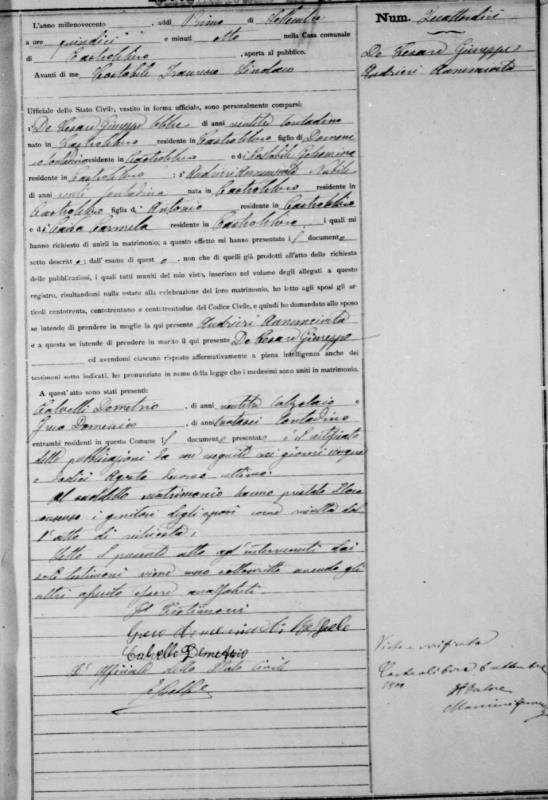 Num. Quattordici
De Cesare Giuseppe
Andrieri Annunziata
L'anno millenovecento , addì Primo di Settembre
a ore quindici e minuti otto nella Casa comunale
di Castrolibero , aperta al pubblico.
Avanti di me Costabile Francesco Sindaco
Ufficiale dello Stato Civile, vestito in forma ufficiale, sono personalmente comparsi:
1. De Cesare Giuseppe celibe di anni ventitre contadino
nato in Castrolibero residente in Castrolibero figlio di Domenico
residente in Castrolibero e di Costabile
residente in Castrolibero ; 2. Andrieri Annunziata Nubile
di anni venti contadina nata in Castrolibero residente in
Castrolibero figlia di Antonio residente in Castrolibero
e di Carmela residente in Castrolibero , i quali mi
hanno richiesto di unirli in matrimonio; a questo effetto mi hanno presentato il documento
sotto descritto; dall'esame di questo , non che di quelli già prodotti all'atto della richiesta
delle pubblicazioni, i quali tutti muniti del mio visto, inserisco nel volume degli allegati a questo
registro, risultandomi nulla ostare alla celebrazione del loro matrimonio, ho letto agli sposi gli ar-
ticoli centotrenta, centotrentano e centotrentadue del Codice Civile, e quindi ho domandato allo sposo
se intende di prendere in moglie la qui presente Andrieri Annunziata
e a questa se intende di prendere in marito il qui presente De Cesare Giuseppe
ed avendomi ciascuno risposto affermativamente a piena intelligenza anche dei
testimoni sotto indicati, ho pronunziato in nome della legge che i medesimi sono uniti in matrimonio.
A quest'atto sono stati presenti:
Calvelli Demetrio , di anni ventitre calzolaio e
Greco Domenico , di anni contadino
entrambi residenti in questo Comune il documento presentato è il certificato
delle pubblicazioni da me eseguite nei giorni cinque
e dodici Agosto ultimo.
Al suddetto matrimonio hanno prestato il loro
consenso i genitori degli sposi come risulta dal
1° atto di richiesta.
Letto il presente atto agl'intervenuti dai
soli testimoni viene meco sottoscritto avendo gli
altri asserito essere analfabeti.
Greco Domenico di
Calvelli Demetrio
L'Ufficiale dello Stato Civile
Visto e verificato
Castrolibero 6 settembre
1900
Il Pretore